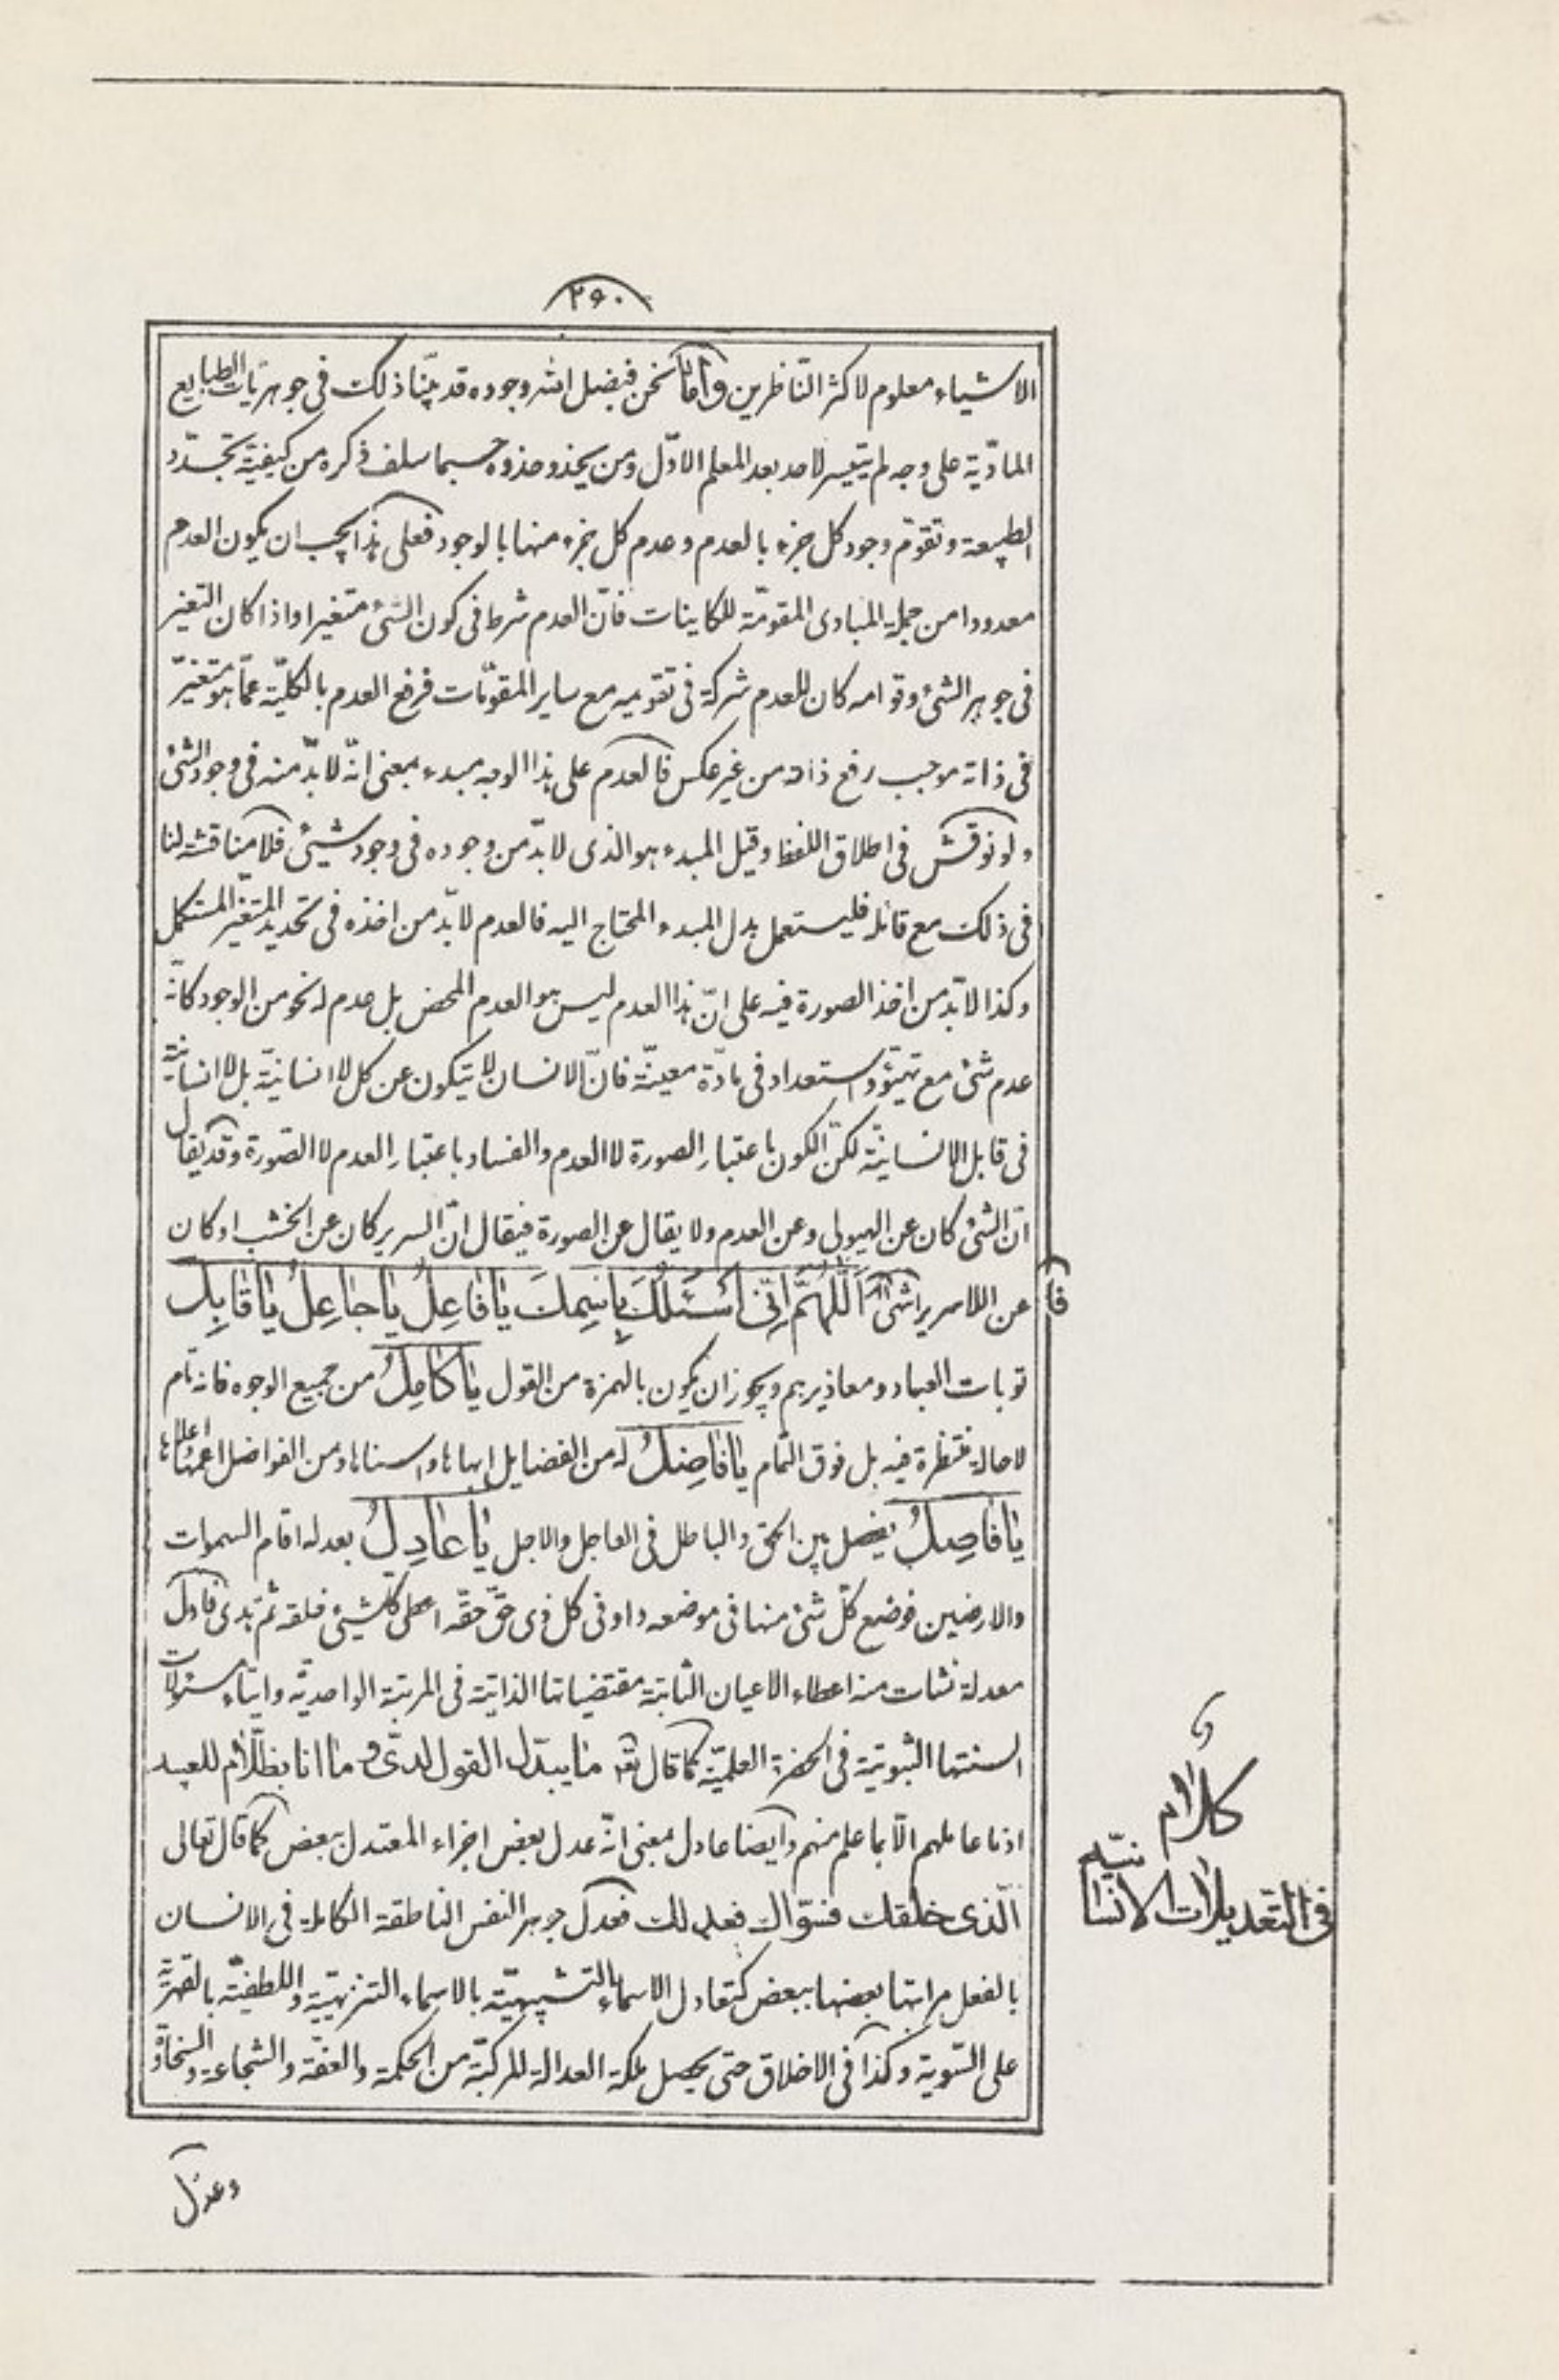 ۲۶۰
الاشياء معلوم لاكثر النّاظرين وامّا نحن فبفضل الله وجوده قد بيّنا ذلك فى جوهريّات الطبايع
الماديّة على وجه لم يتيسر لاحد بعد المعلم الاوّل ومن يحذو حذوه حسبما سلف ذكره من كيفيّة تجدّد
الطبيعة وتقوّم وجود كل جزء بالعدم وعدم كل جزء منها بالوجود فعلى هذا يجب ان يكون العدم
معدودا من جملة المبادى المقوّمة للكاينات فانّ العدم شرط فى كون الشئ متغيرا واذا كان التغير
فى جوهر الشئ وقوامه كان للعدم شركة فى تقويمه مع ساير المقوّمات فرفع العدم بالكليّة عمّا هو متغيّر
فى ذاته موجب رفع ذاته من غير عكس فالعدم على هذا الوجه مبدء بمعنى انّه لا بدّ منه فى وجود الشئ
ولو نوقش فى اطلاق اللفظ وقيل المبدء هو الذى لا بدّ من وجوده فى وجود شيئ فلا مناقشة لنا
فى ذلك مع قائله فليستعمل بدل المبدء المحتاج اليه فالعدم لا بدّ من اخذه فى تحديد المتغير المستكمل
وكذا لا بدّ من اخذ الصورة فيه على انّ هذا العدم ليس هو العدم المحض بل عدم له نحو من الوجود كانّه
عدم شئ مع تهيّؤ واستعداد فى مادّة معينّة فانّ الانسان لا يتكون عن كل لا انسانيّة بل لا انسانيّة
فى قابل الانسانيّة لكنّ الكون باعتبار الصورة لا العدم والفساد باعتبار العدم لا الصّورة وقد يقال
انّ الشئ كان عن الهيولى وعن العدم ولا يقال عن الصورة فيقال انّ السرير كان عن الخشب او كان
عن اللاسرير انتهى اَللّٰهُمَّ اِنّى اَسْئَلُكَ بِاسْمِكَ يٰا فٰاعِلُ يٰا جٰاعِلُ يٰا قٰابِلُ
توبات العباد ومعاذيرهم ويجوز ان يكون بالهمزة من القول يٰا كٰامِلُ من جميع الوجوه فانه تام
لا حالة منتظرة فيه بل فوق التمام يٰا فٰاضِلُ له من الفضايل ابهاها واسناها ومن الفواضل اعمّها واعلاها
يٰا فٰاصِلُ يفصل بين الحق والباطل فى العاجل والاجل يٰا عٰادِلُ بعدله اقام السموات
والارضين فوضع كلّ شئ منها فى موضعه واوفى كل ذى حقّ حقّه اعطى كلّ شيئ خلقه ثم هدى فاوّل
معدلة نشات منه اعطاء الاعيان الثابتة مقتضياتها الذاتيّة فى المرتبة الواحديّة وايتاء مسئولات
السنتها الثبوتيّة فى الحضرة العلميّة كما قال تعه مٰا يبدّل القول لدىّ و مٰا انا بظلّٰام للعبيد
اذ ما عاملهم الّا بما علم منهم وايضا عادل بمعنى انّه عدل بعض اجزاء المعتدل ببعض كما قال تعالى
الّذى خلقك فسوّاك فعدلك فعدل جوهر النفس الناطقة الكاملة فى الانسان
بالفعل مراتبها بعضها ببعض كتعادل الاسماء التشبيهيّة بالاسماء التنزيهيّية واللطفيّة بالقهريّة
على السّوية وكذا فى الاخلاق حتى يحصل ملكة العدالة المركبّة من الحكمة والعفّة والشجاعة والسّخاوة
وعدل
فا
كلٰام
فى التّعديلٰات الانسٰانيّه